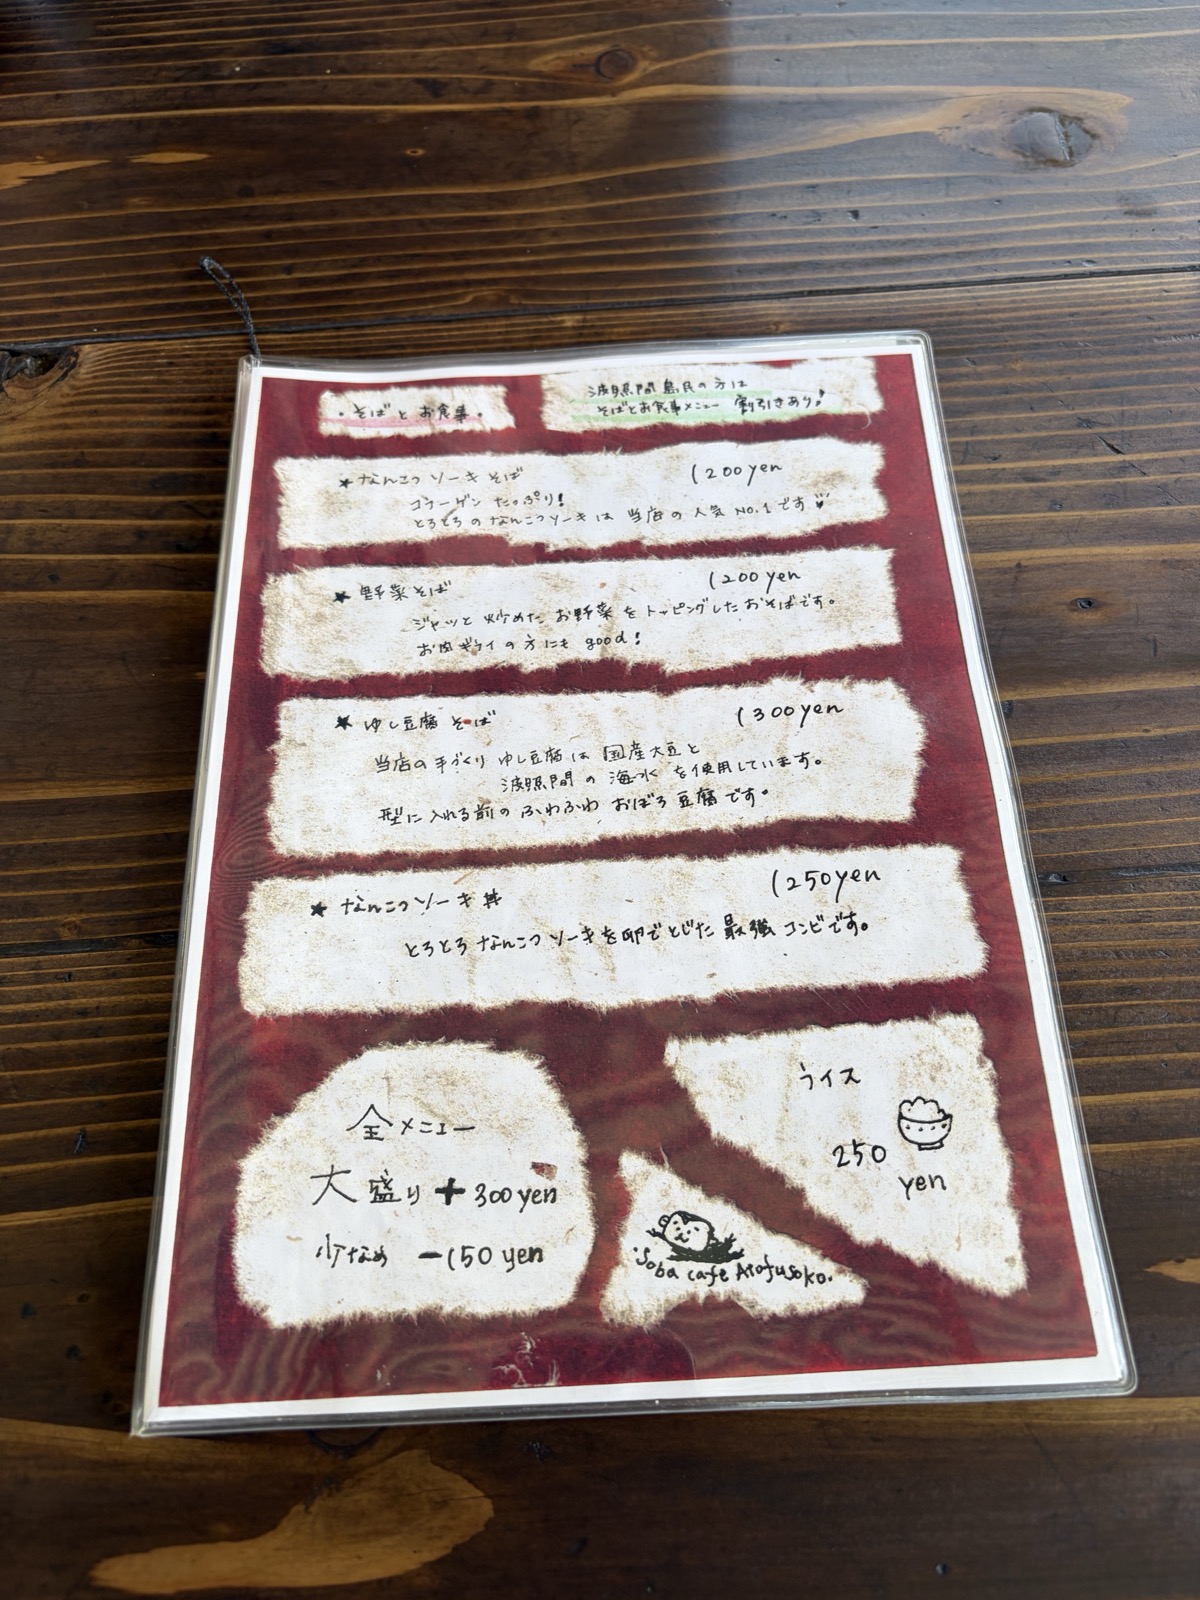 ・そばとお食事・
波照間島民の方は
そばとお食事メニュー 割引きあり!
★なんこつソーキそば 1200yen
コラーゲンたっぷり!
とろとろのなんこつソーキは当店の人気No.1です
★野菜そば 1200yen
ジャッと炒めたお野菜をトッピングしたおそばです。
お肉ギライの方にもgood!
★ゆし豆腐そば 1300yen
当店の手づくりゆし豆腐は国産大豆と
波照間の海水を使用しています。
型に入れる前のふわふわおぼろ豆腐です。
★なんこつソーキ丼 1250yen
とろとろなんこつソーキを卵でとじた最強コンビです。
全メニュー
大盛り+300yen
少なめ -150yen
ライス
250
yen
Soba cafe Atofusoko.